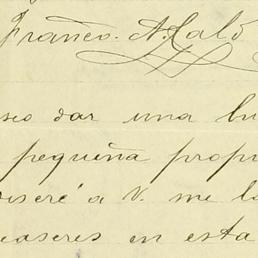 Franco. A. Calò
seo dar una bu
pequeña propi
iseré a V. me la
easeres en esta